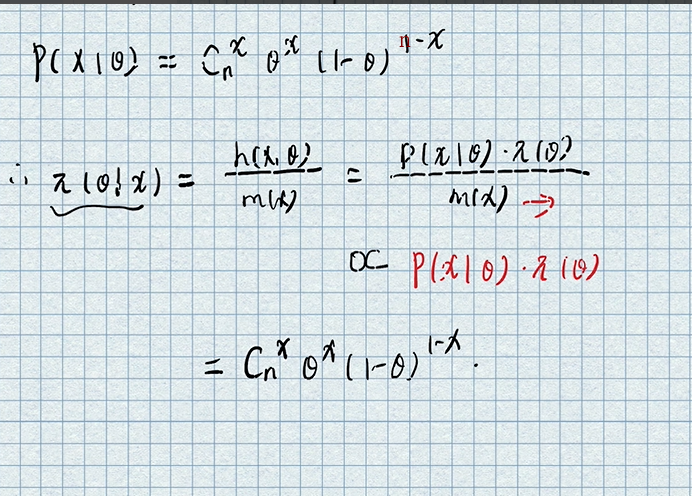 P(x|θ) = Cₙˣ θˣ (1-θ)ⁿ⁻ˣ
∴ π(θ|x) = h(x,θ)/m(x) = p(x|θ)·π(θ)/m(x) →
∝ P(x|θ)·π(θ)
= Cₙˣ θˣ (1-θ)¹⁻ˣ.